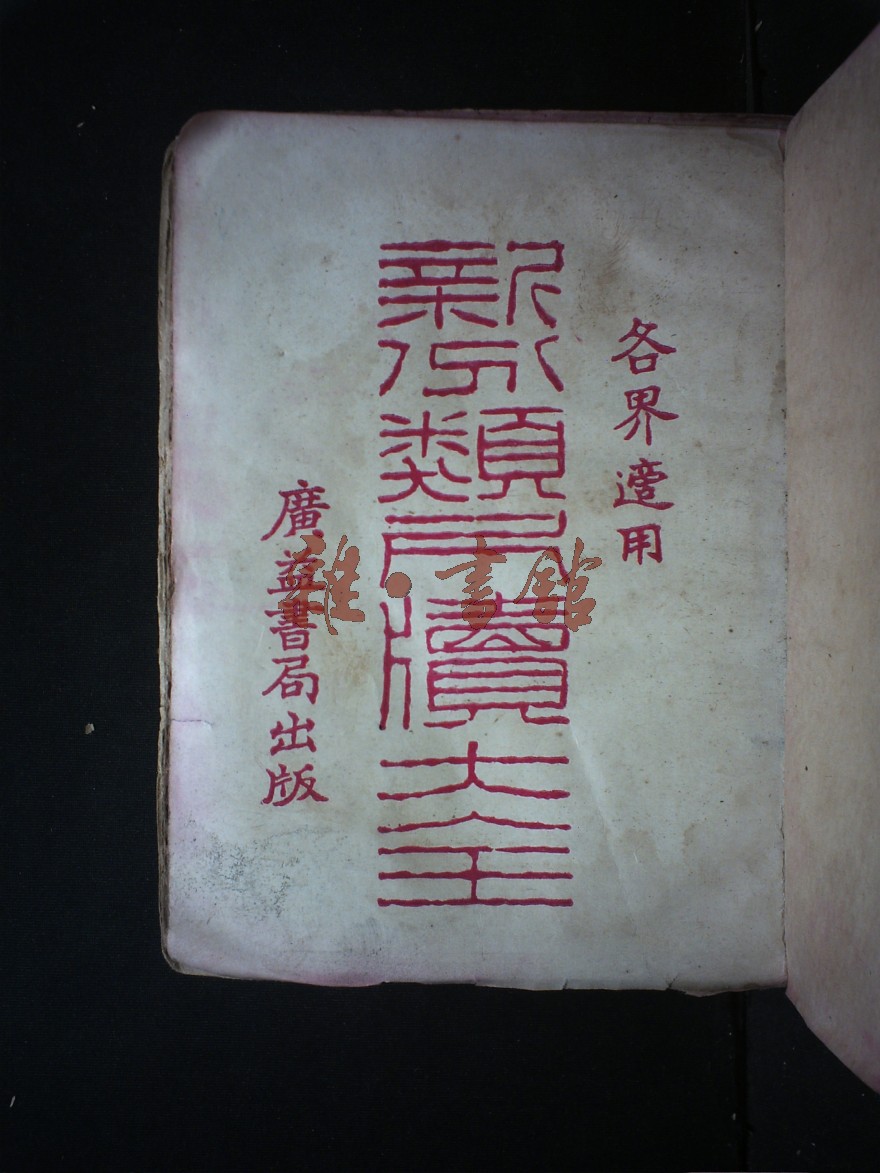 各界適用
新分類尺牘大全
廣益書局出版
雜·書館